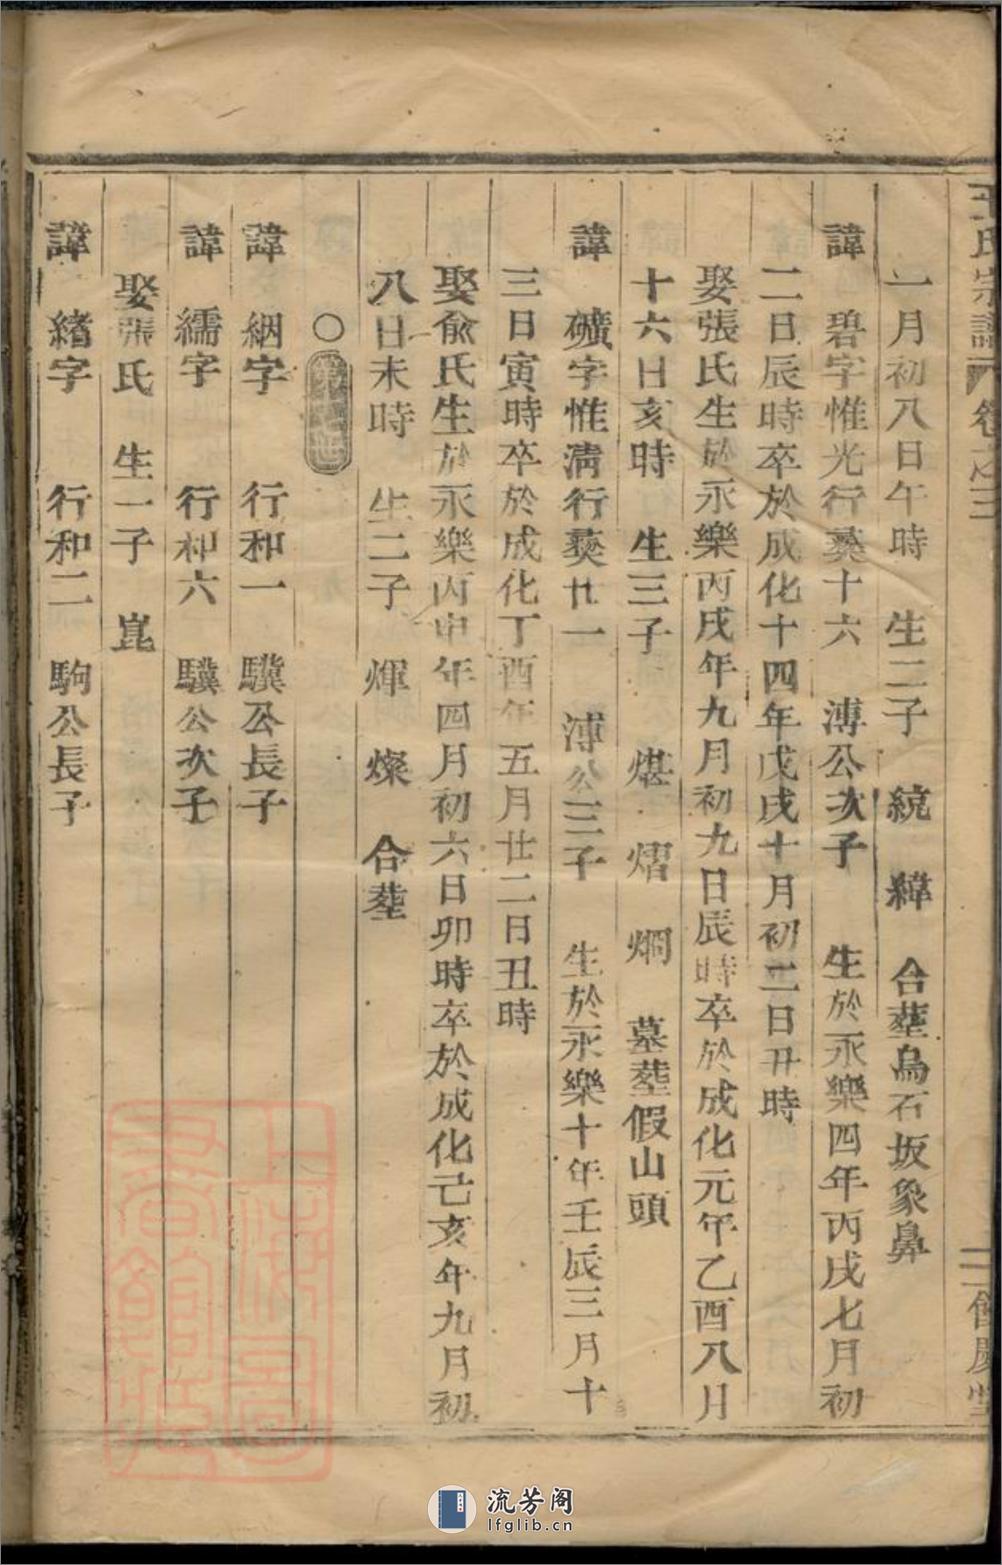 王氏宗譜 卷之三
二 餘慶堂
一月初八日午時 生二子 統 緯 合塟烏石坂象鼻
諱 碧字惟光行羙十六 溥公次子 生於永樂四年丙戌七月初
二日辰時卒於成化十四年戊戌十月初二日丑時
娶張氏生於永樂丙戌年九月初九日辰時卒於成化元年乙酉八月
十六日亥時 生三子 煁 熠 烱 墓塟假山頭
諱 礦字惟淸行羙廿一 溥公三子 生於永樂十年壬辰三月十
三日寅時卒於成化丁酉年五月廿二日丑時
娶兪氏生於永樂丙申年四月初六日卯時卒於成化己亥年九月初
八日未時 生二子 煇 燦 合塟
○
諱 絪字 行和一 驥公長子
諱 繻字 行和六 驥公次子
娶張氏 生一子 崑
諱 緒字 行和二 駒公長子
上海圖書館藏
流芳阁
lfglib.cn